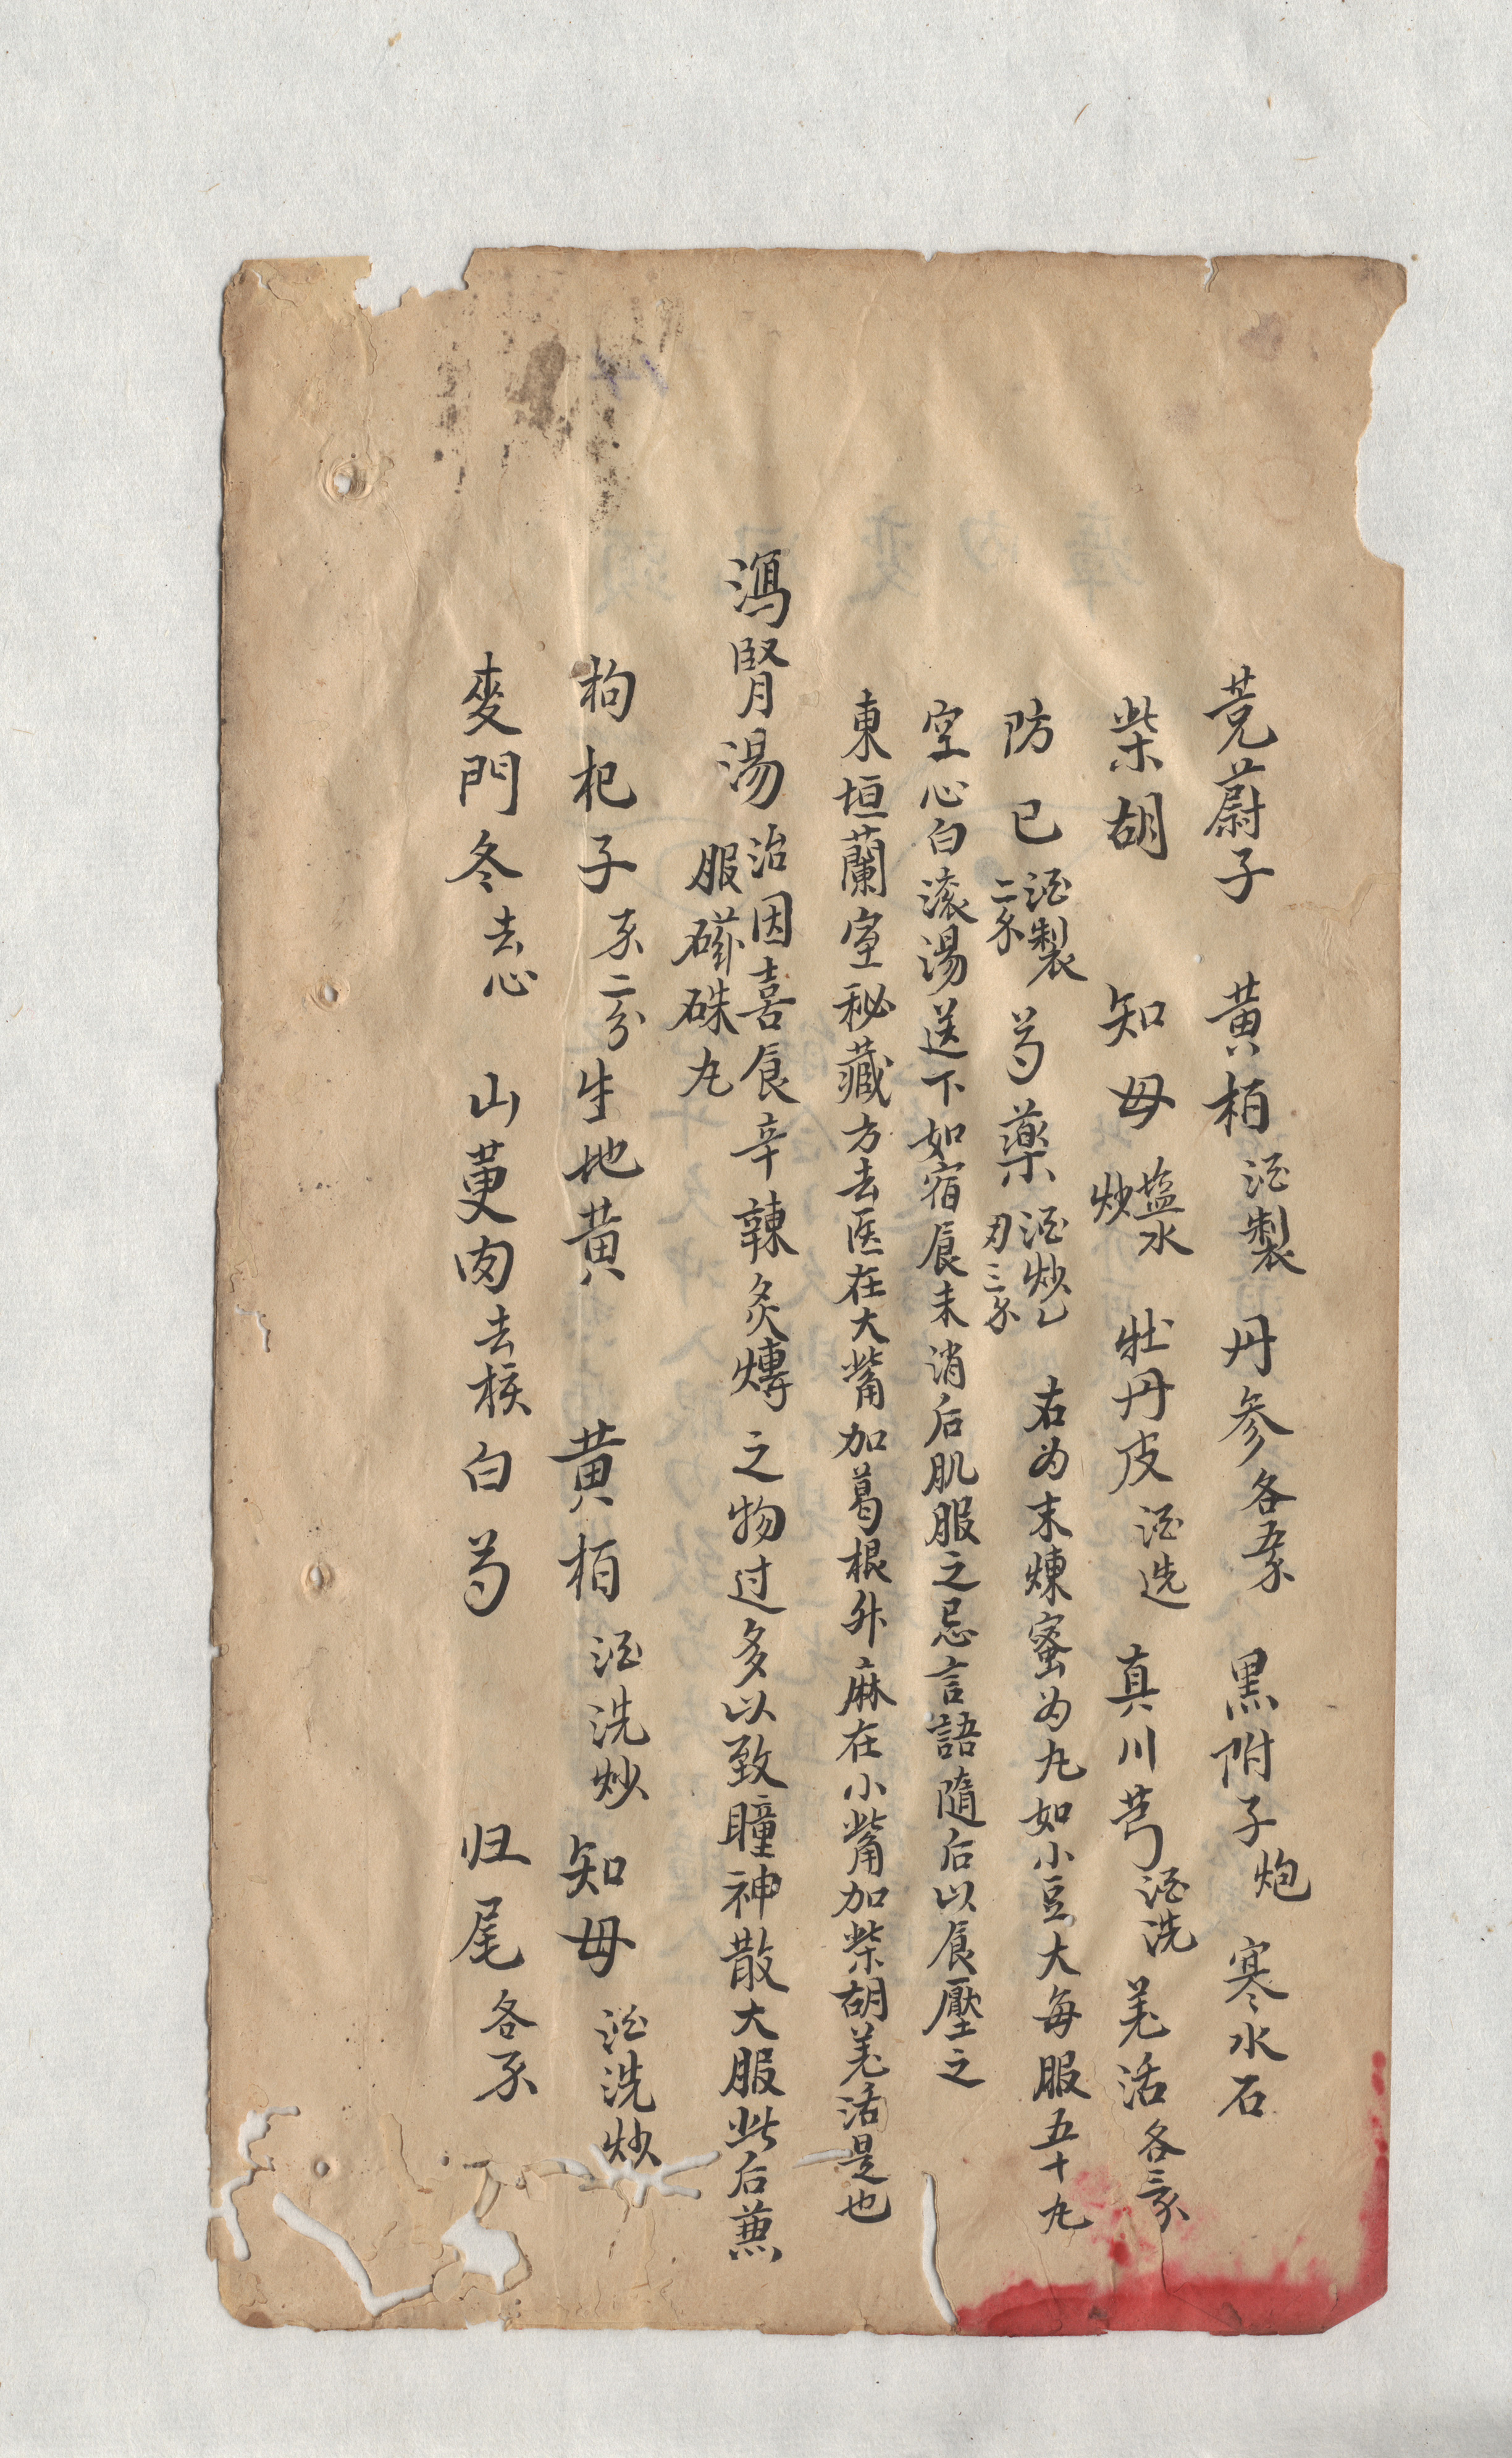 茺蔚子 黃柏酒製 丹參各五錢 黑附子炮 寒水石
柴胡 知母塩水炒 牡丹皮酒洗 真川芎酒洗 羌活各三錢
防已酒製二錢 芍藥酒炒乙刃三錢 右为末煉蜜为丸如小豆大每服五十丸
空心白滚湯送下如宿食未消后肌服之忌言語随后以食壓之
東垣蘭室秘藏方去医在大觜加葛根升麻在小觜加柴胡羌活是也
瀉腎湯治因喜食辛辣炙煿之物过多以致瞳神散大服此后兼
服磁硃丸
枸杞子 二分生地黄 黄栢酒洗炒 知母酒洗炒
麥門冬去心 山萸肉去核 白芍 归尾各